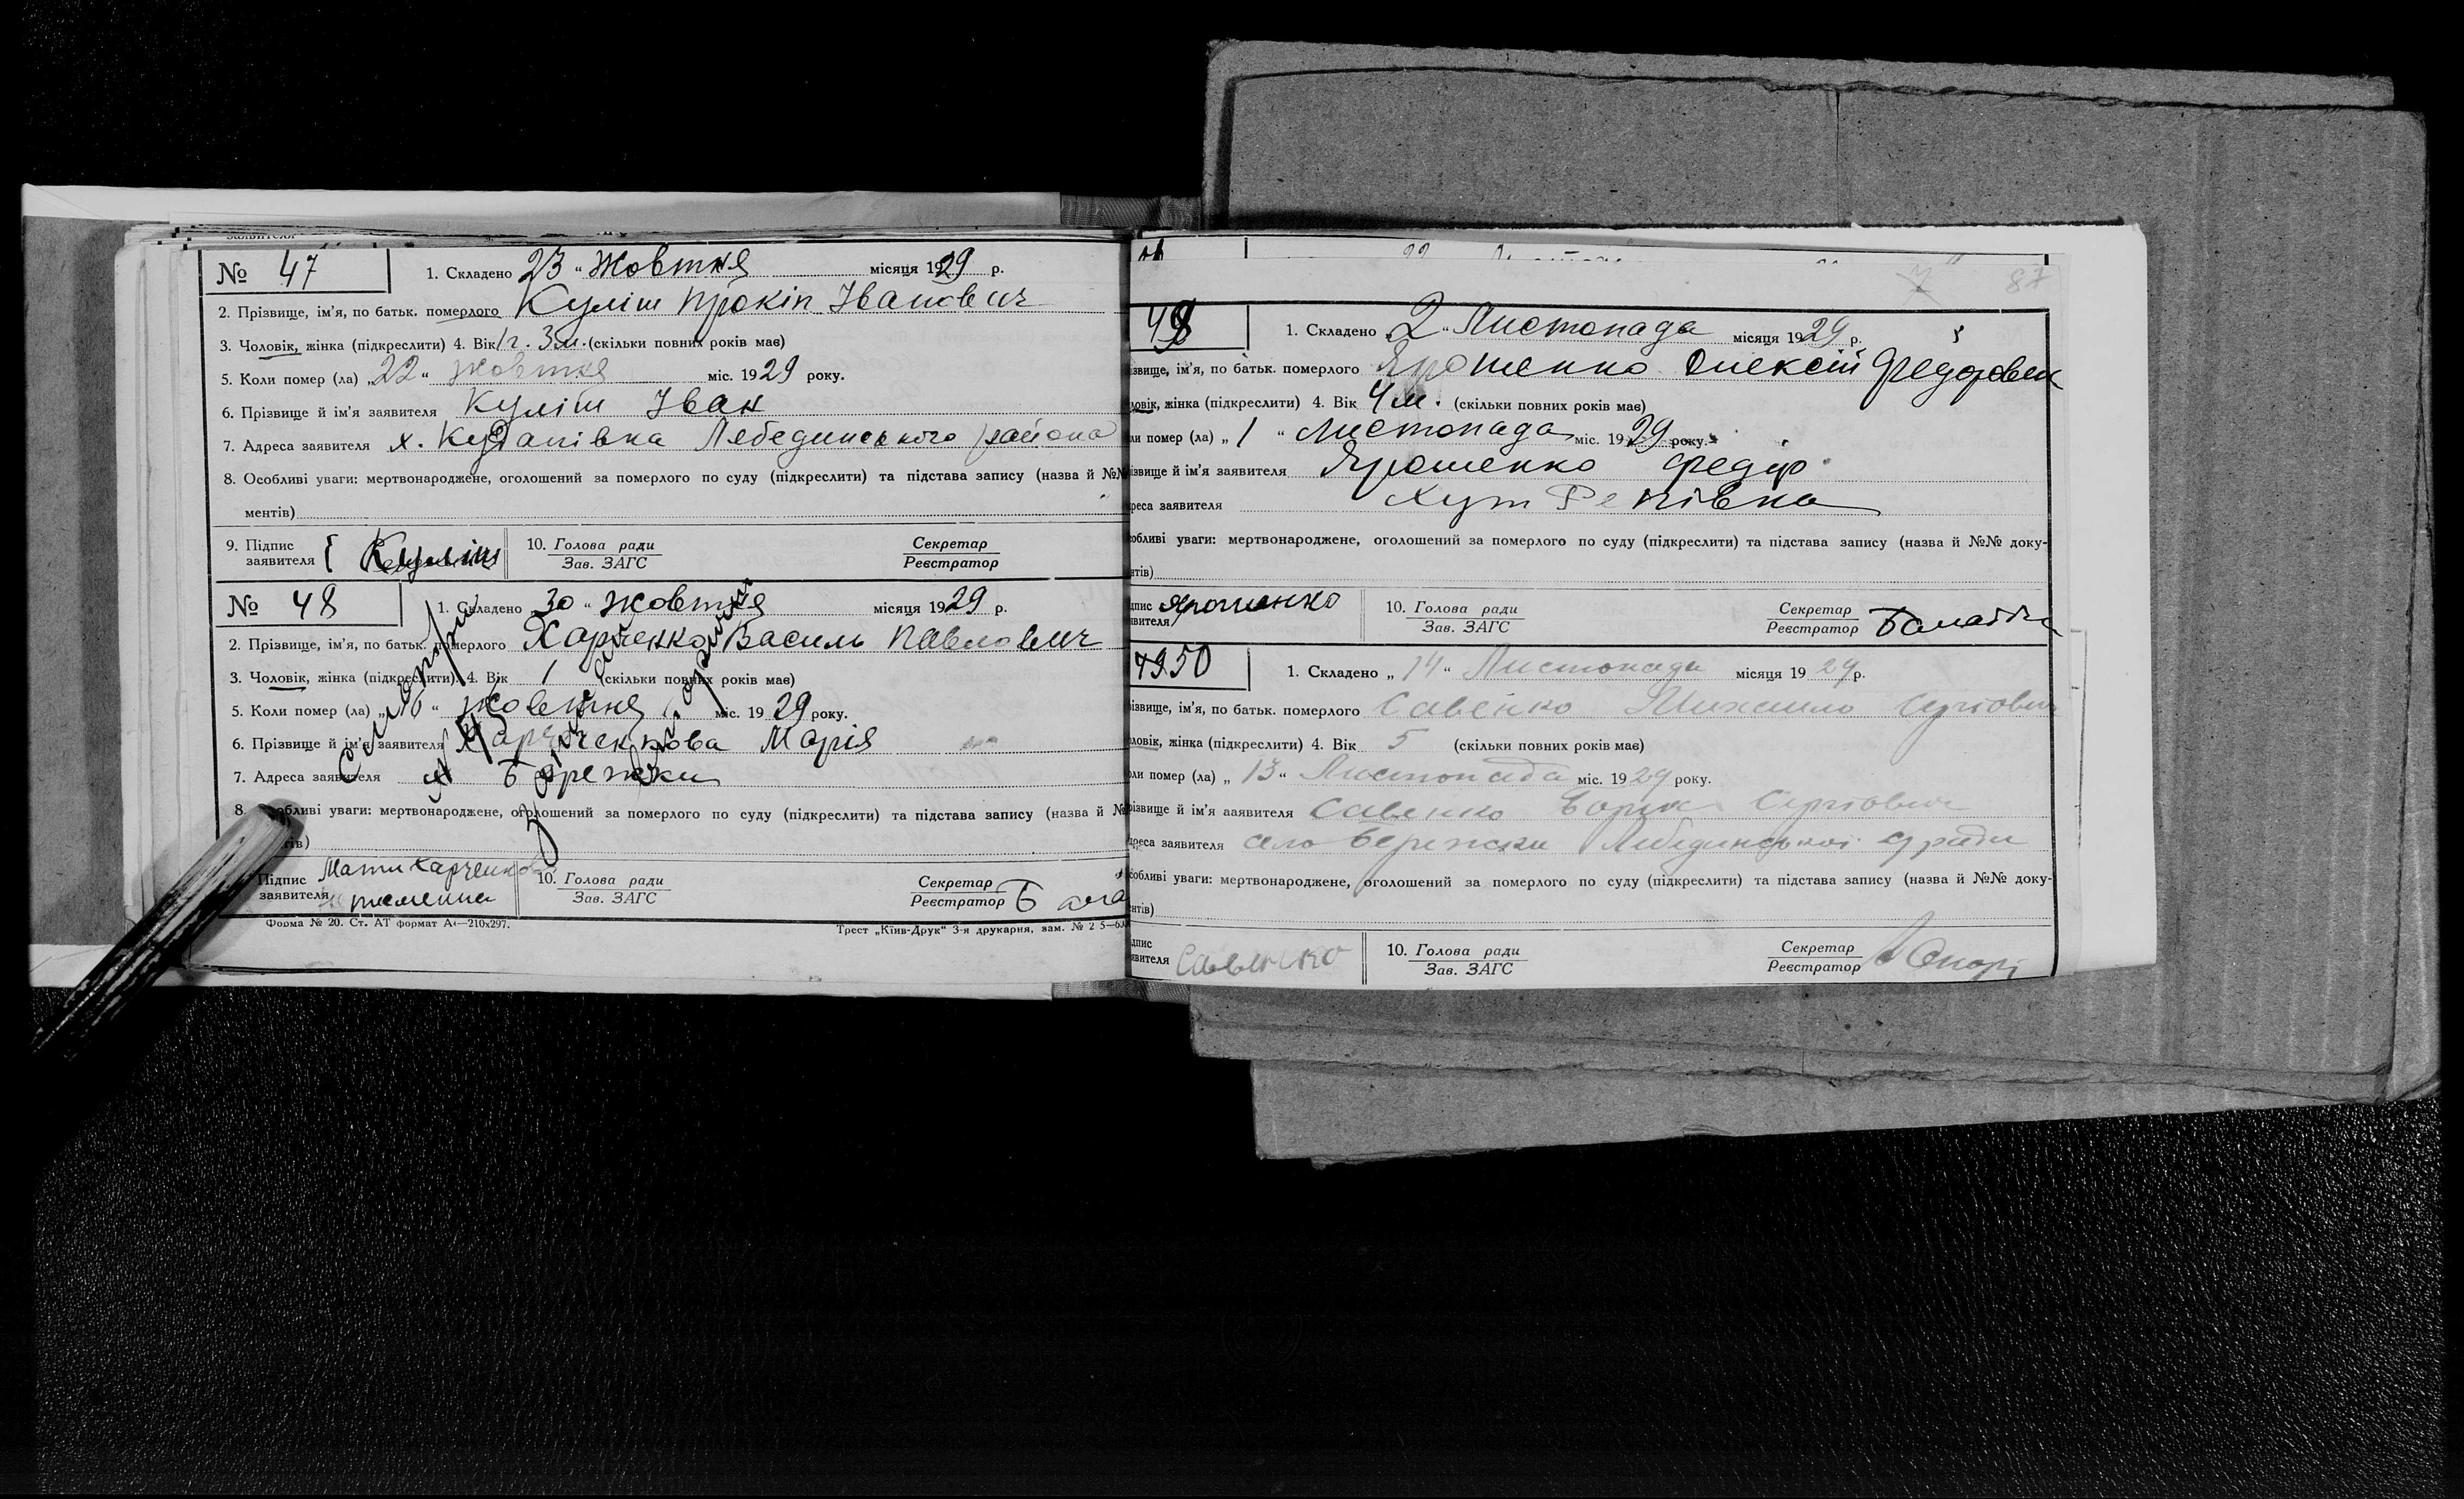 заявителя
№ 47
1. Складено 23 " Жовтня місяця 1929 р.
2. Прізвище, ім'я, по батьк. померлого Куліш Прокіп Іванович
3. Чоловік, жінка (підкреслити) 4. Вік 1 г. 3 м. (скільки повних років має)
5. Коли помер (ла) „22" жовтня міс. 1929 року.
6. Прізвище й ім'я заявителя Куліш Іван
7. Адреса заявителя х. Лебединського района
8. Особливі уваги: мертвонароджене, оголошений за померлого по суду (підкреслити) та підстава запису (назва й №№
ментів)
9. Підпис заявителя { Куліш
10. Голова ради
Зав. ЗАГС
Секретар
Реєстратор
№ 48
1. Складено „30 " жовтня місяця 1929 р.
2. Прізвище, ім'я, по батьк. померлого Харченко Василь Павлович
3. Чоловік, жінка (підкреслити) 4. Вік 1 (скільки повних років має)
5. Коли помер (ла) „ " жовтня міс. 1929 року.
6. Прізвище й ім'я заявителя Харченкова Марія
7. Адреса заявителя Бережки
8. Особливі уваги: мертвонароджене, оголошений за померлого по суду (підкреслити) та підстава запису (назва й №
тів)
Підпис заявителя Мати Харченкова
10. Голова ради
Зав. ЗАГС
Секретар
Реєстратор
Форма № 20. Ст. АТ формат А4—210х297.
Трест „Київ-Друк" 3-я друкарня, зам. № 2 5—6
87
49
1. Складено „2 " Листопада місяця 1929 р.
ізвище, ім'я, по батьк. померлого Ярошенко Олексій Федорович
ловік, жінка (підкреслити) 4. Вік 4 м. (скільки повних років має)
ли помер (ла) „ 1 " Листопада міс. 1929 року.
ізвище й ім'я заявителя Ярошенко Федір
реса заявителя Хут Репівка
обливі уваги: мертвонароджене, оголошений за померлого по суду (підкреслити) та підстава запису (назва й №№ доку-
нтів)
дпис явителя Ярошенко
10. Голова ради
Зав. ЗАГС
Секретар
Реєстратор
4950
1. Складено „ 14 " Листопада місяця 1929 р.
різвище, ім'я, по батьк. померлого Савенко Михайло Сергіович
ловік, жінка (підкреслити) 4. Вік 5 (скільки повних років має)
оли помер (ла) „ 13 " Листопада міс. 1929 року.
різвище й ім'я заявителя Савенко Сергіович
дреса заявителя село Бережки Лебединської с/ради
собливі уваги: мертвонароджене, оголошений за померлого по суду (підкреслити) та підстава запису (назва й №№ доку-
ентів)
дпис явителя Савенко
10. Голова ради
Зав. ЗАГС
Секретар
Реєстратор